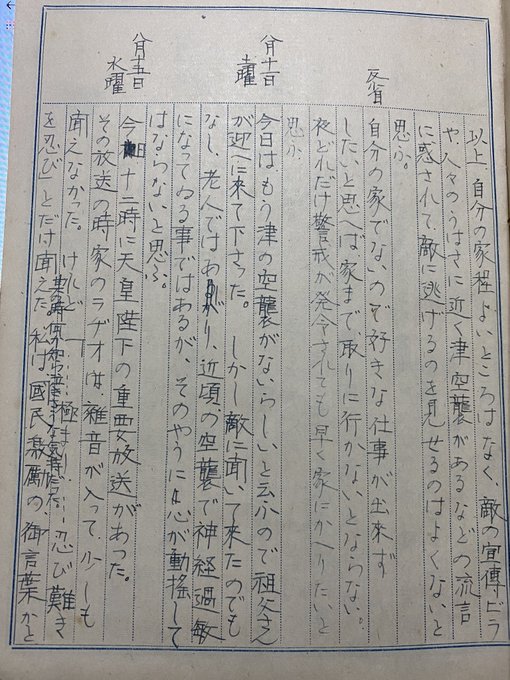 以上、自分の家程よいところはなく、敵の宣傳ビラ
や、人々のうはさに近く津空襲があるなどの流言
に惑されて、敵に逃げるのを見せるのはよくないと
思ふ。
反省
自分の家でないので好きな仕事が出来ず
したいと思へば、家まで、取りに行かないとならない。
夜どれだけ警戒が発令されても早く家にかへりたいと
思ふ
八月十一日
土曜
今日はもう津の空襲がないらしいと云ふので祖父さん
が迎へに来て下さった。しかし敵に聞いて来たのでも
なし、老人ではあり、近頃の空襲で神経過敏
になってゐる事ではあるが、そのやうに心が動揺して
はならないと思ふ。
八月十五日
水曜
今日十二時に天皇陛下の重要放送があった。
その放送の時家のラヂオは雑音が入って少しも
聞えなかった。けれど「‥極ま‥‥忍び難き
を忍び」とだけ聞えた。私は國民激励の御言葉かと
其の時何か知ら泣きさうな気持だった。